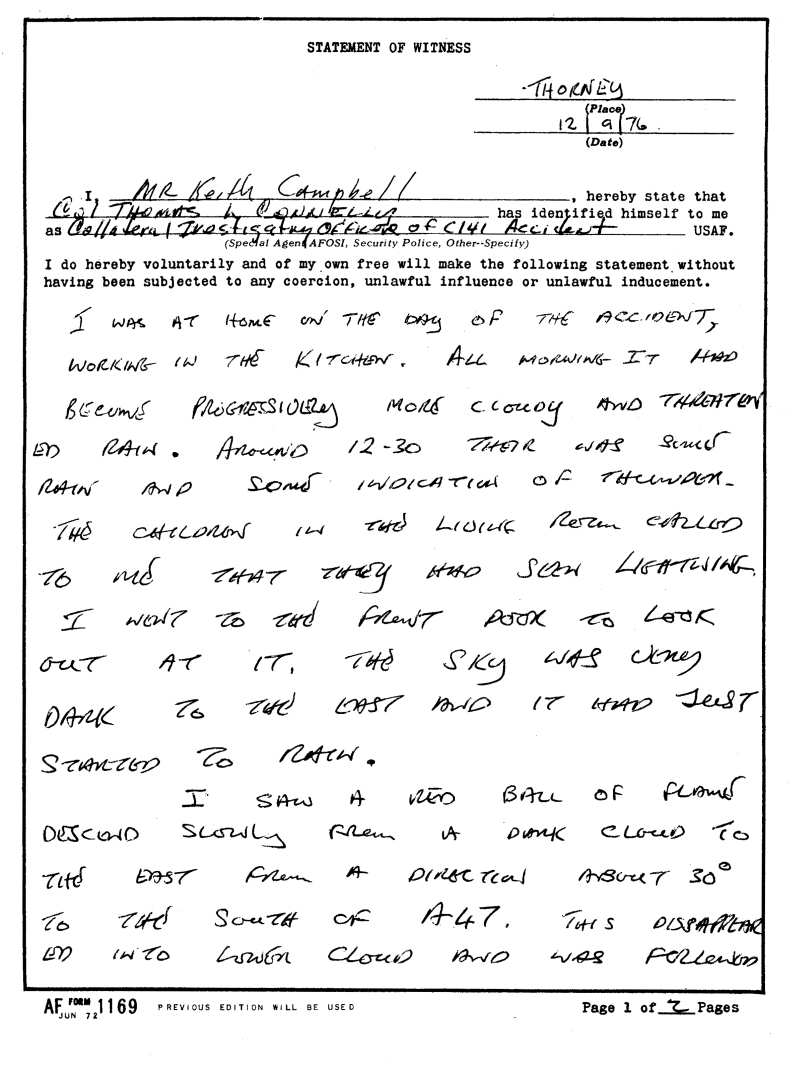 STATEMENT OF WITNESS
THORNEY
(Place)
12 | 9 | 76
(Date)
I, MR Keith Campbell, hereby state that
Col THOMAS L CONNELLY has identified himself to me
as Collateral Investigatry OFFICER OF C141 Accident USAF.
(Special Agent AFOSI, Security Police, Other--Specify)
I do hereby voluntarily and of my own free will make the following statement without
having been subjected to any coercion, unlawful influence or unlawful inducement.
I WAS AT HOME ON THE DAY OF THE ACCIDENT,
WORKING IN THE KITCHEN. ALL MORNING IT HAD
BECOME PROGRESSIVELY MORE CLOUDY AND THREATEN
ED RAIN. AROUND 12-30 THEIR WAS SOME
RAIN AND SOME INDICATION OF THUNDER.
THE CHILDREN IN THE LIVING ROOM CALLED
TO ME THAT THEY HAD SEEN LIGHTNING.
I WENT TO THE FRONT DOOR TO LOOK
OUT AT IT. THE SKY WAS VERY
DARK TO THE EAST AND IT HAD JUST
STARTED TO RAIN.
I SAW A RED BALL OF FLAME
DESCEND SLOWLY FROM A DARK CLOUD TO
THE EAST FROM A DIRECTION ABOUT 30°
TO THE SOUTH OF A47. THIS DISAPPEAR
ED INTO LOWER CLOUD AND WAS FOLLOWED
AF FORM 1169 JUN 72 PREVIOUS EDITION WILL BE USED Page 1 of 2 Pages